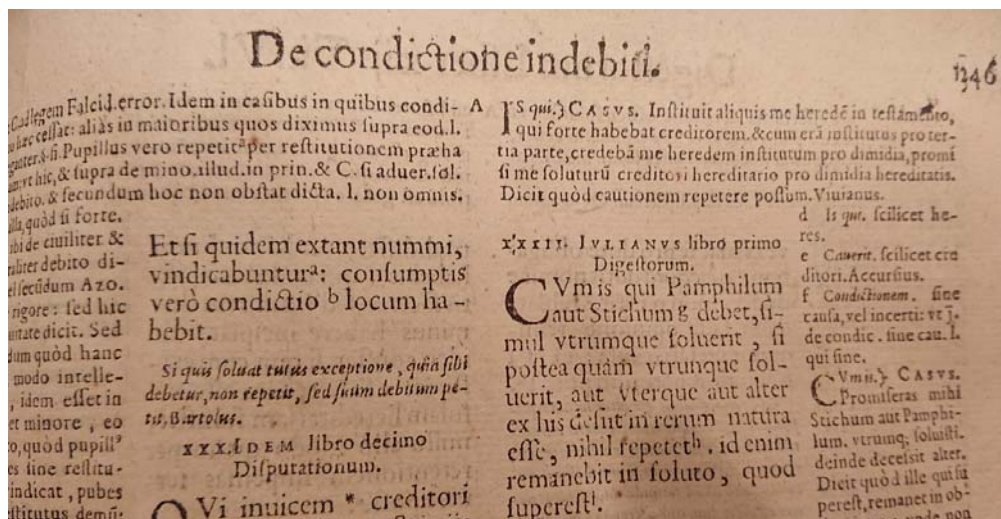 De condictione indebiti.
1346
Ad legem Falcid. error. Idem in casibus in quibus condi-
hæc cessat: aliàs in maioribus quos diximus supra eod. l.
& si. Pupillus vero repetitᵃ per restitutionem præha
vt hic, & supra de mino. illud. in prin. & C. si aduer. sol.
debito. & secundum hoc non obstat dicta. l. non omnis.
quòd si forte.
ibi de ciuiliter &
debito di-
secũdum Azo.
rigore: sed hic
dicit. Sed
quòd hanc
modo intelle-
, idem esset in
et minore, eo
quòd pupill⁹
sine restitu-
indicat, pubes
demũ:
Et si quidem extant nummi,
vindicabunturᵃ: consumptis
verò condictio ᵇ locum ha-
bebit.
Si quis soluat tutus exceptione, quia sibi
debetur, non repetit, sed suum debitum pe-
tit, Bartolus.
XXX. IDEM libro decimo
Disputationum.
QVi inuicem creditori
A
IS qui.} CASVS. Instituit aliquis me heredẽ in testamento,
qui forte habebat creditorem. & cum erã institutus pro ter-
tia parte, credebã me heredem institutum pro dimidia, promi
si me soluturũ creditori hereditario pro dimidia hereditatis.
Dicit quòd cautionem repetere possum. Viuianus.
XXXII. IVLIANVS libro primo
Digestorum.
CVm is qui Pamphilum
aut Stichum g debet, si-
mul vtrumque soluerit, si
postea quàm vtrunque sol-
uerit, aut vterque aut alter
ex his desiit in rerum natura
esse, nihil repetetʰ. id enim
remanebit in soluto, quod
superestⁱ.
d Is qui. scilicet he-
res.
e Cauerit. scilicet cre
ditori. Accursius.
f Condictionem. sine
causa, vel incerti: vt j.
de condic. sine cau. l.
qui sine.
CVm is.} CASVS.
Promiseras mihi
Stichum aut Pamphi-
lum. vtrumq; soluisti.
deinde decessit alter.
Dicit quòd ille qui sũ
perest, remanet in ob-
non